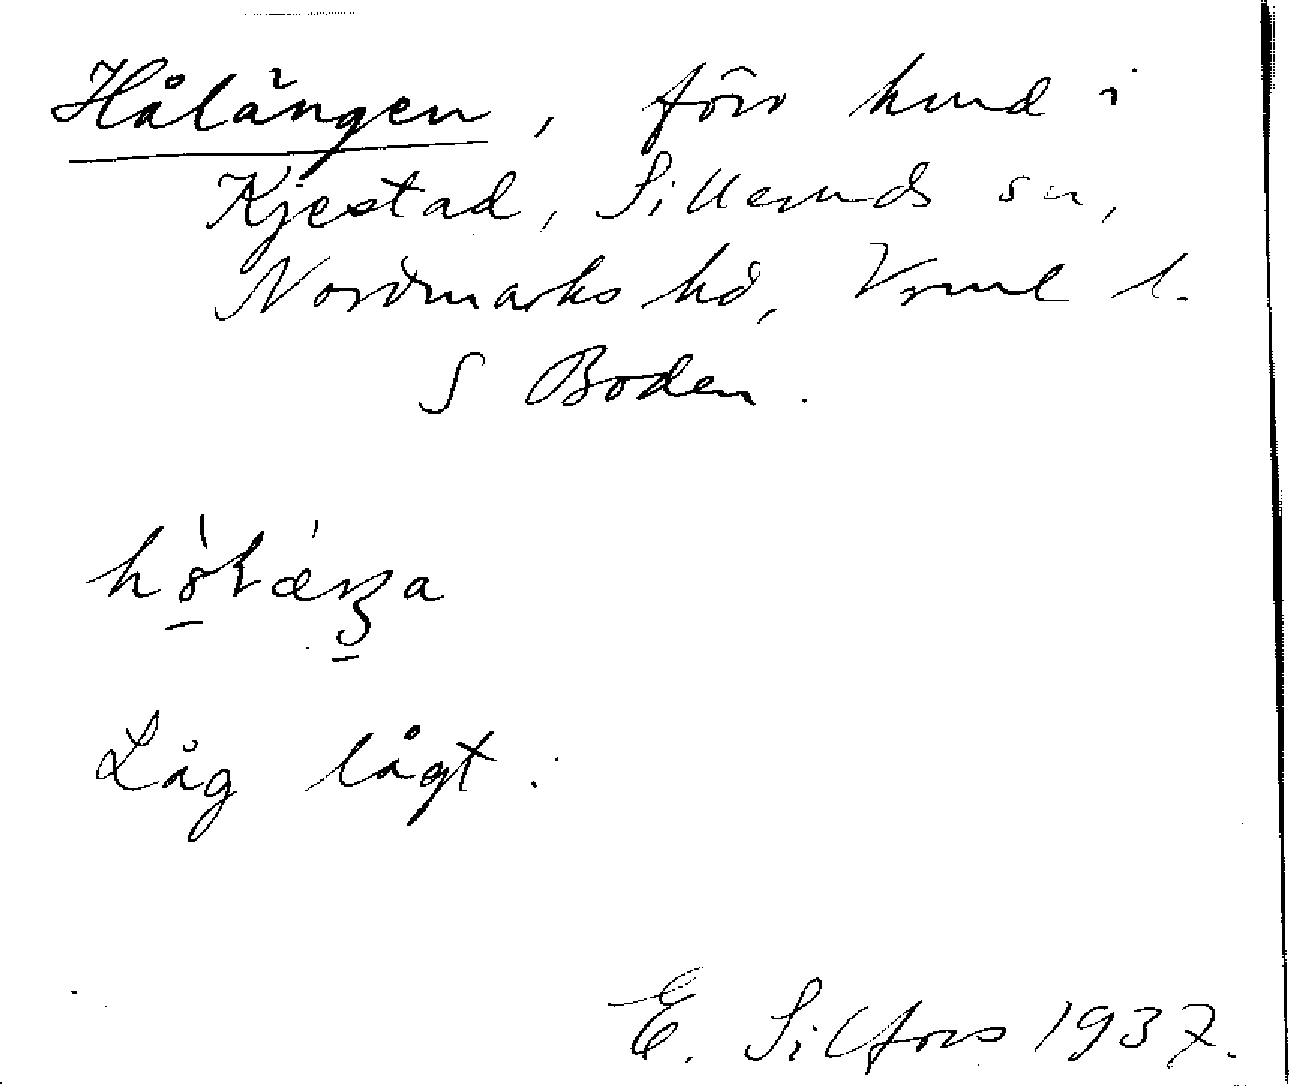 Hålängen, förr hmd i
Kjestad, Silleruds sn,
Nordmarks hd, Vrml l.
S Boden.
Låg lågt.
E. Silfors 1937.